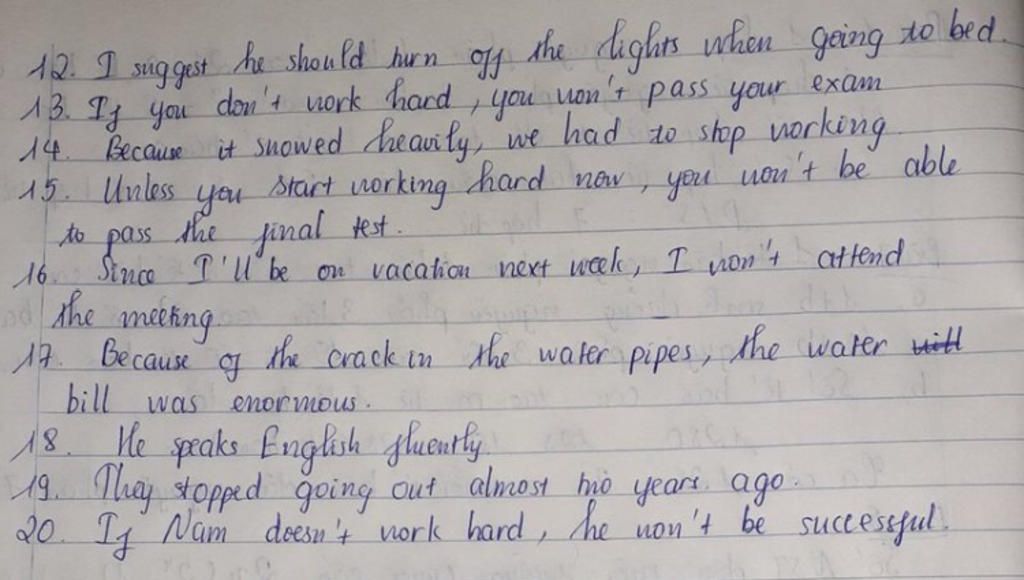 12. I suggest he should turn off the lights when going to bed.
13. If you don't work hard, you won't pass your exam
14. Because it snowed heavily, we had to stop working
15. Unless you start working hard now, you won't be able
to pass the final test.
16. Since I'll be on vacation next week, I won't attend
the meeting.
17. Because of the crack in the water pipes, the water will
bill was enormous.
18. He speaks English fluently.
19. They stopped going out almost two years ago.
20. If Nam doesn't work hard, he won't be successful.